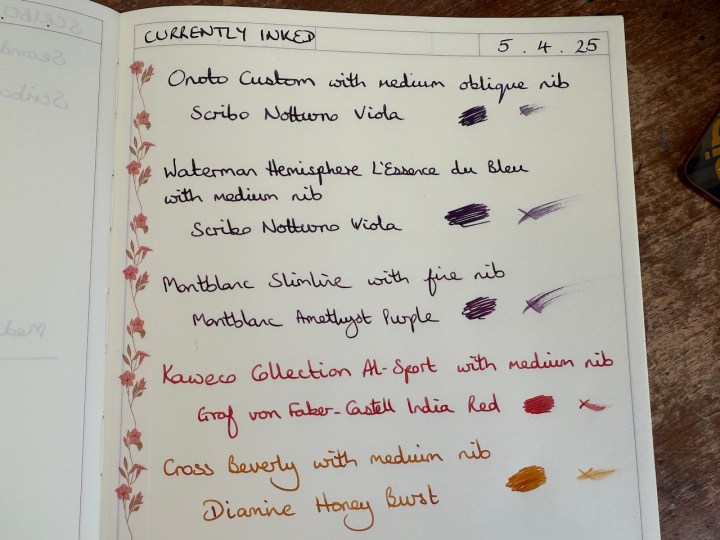 CURRENTLY INKED
5.4.25
Onoto Custom with medium oblique nib
Scribo Notturno Viola
Waterman Hemisphere L'Essence du Bleu
with medium nib
Scribo Notturno Viola
Montblanc Slimline with fine nib
Montblanc Amethyst Purple
Kaweco Collection Al-Sport with medium nib
Graf von Faber-Castell India Red
Cross Beverly with medium nib
Diamine Honey Burst